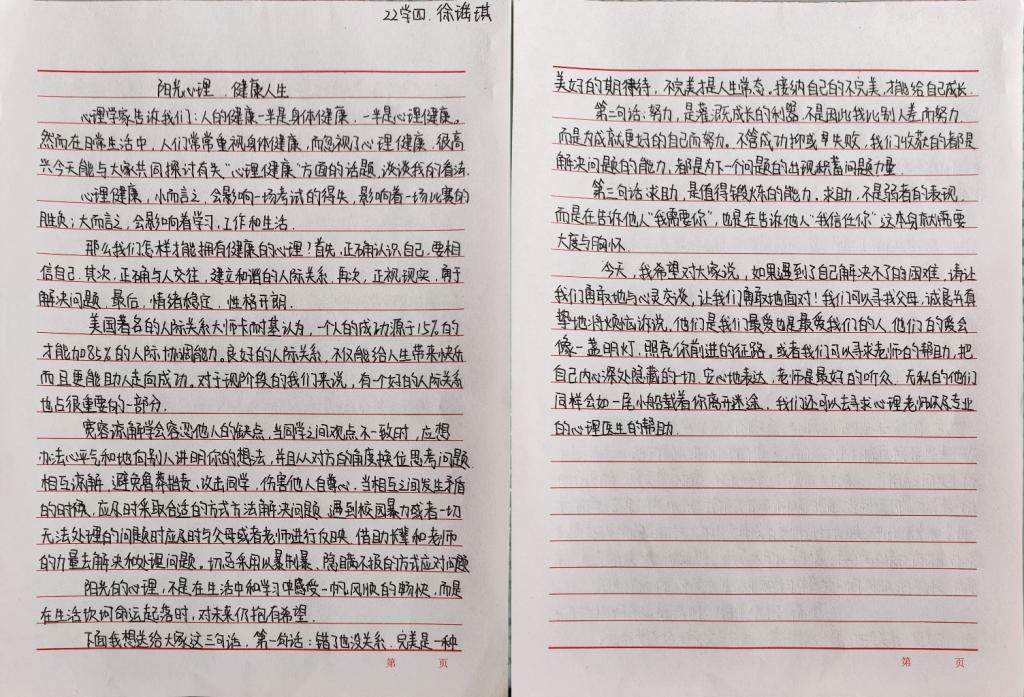 22学四.徐谣琪
阳光心理 健康人生
心理学家告诉我们：人的健康一半是身体健康，一半是心理健康。
然而在日常生活中，人们常常重视身体健康，而忽视了心理健康。很高
兴今天能与大家共同探讨有关“心理健康”方面的话题，谈谈我的看法.
心理健康，小而言之，会影响一场考试的得失，影响着一场比赛的
胜负；大而言之，会影响着学习，工作和生活.
那么我们怎样才能拥有健康的心理？首先，正确认识自己，要相
信自己.其次，正确与人交往，建立和谐的人际关系.再次，正视现实，勇于
解决问题.最后，情绪稳定，性格开朗.
美国著名的人际关系大师卡耐基认为，一个人的成功源于15%的
才能加85%的人际协调能力。良好的人际关系，不仅能给人生带来快乐
而且更能助人走向成功。对于现阶段的我们来说，有一个好的人际关系
也占很重要的一部分.
宽容流解学会容忍他人的缺点，当同学之间观点不一致时，应想
办法心平气和地向别人讲明你的想法，并且从对方的角度换位思考问题.
相互流解，避免鲁莽指责、攻击同学，伤害他人自尊心，当相互之间发生矛盾
的时候，应及时采取合适的方式方法解决问题，遇到校园暴力或者一切
无法处理的问题时应及时与父母或者老师进行反映，借助长辈和老师
的力量去解决和处理问题。切忌采用以暴制暴、隐瞒不报的方式应对问题
阳光的心理，不是在生活中和学习中感受一帆风顺的畅快，而是
在生活坎坷命运起落时，对未来仍抱有希望.
下面我想送给大家这三句话，第一句话：错了也没关系.完美是一种
第 页
美好的期待，不完美才是人生常态，接纳自己的不完美，才能给自己成长.
第二句话：努力，是灌溉成长的利器.不是因此我比别人差而努力
而是为成就更好的自己而努力。不管成功抑或是失败，我们收获的都是
解决问题的能力，都是为下一个问题的出现积蓄问题力量.
第三句话求助，是值得锻炼的能力，求助，不是弱者的表现，
而是在告诉他人“我需要你”，也是在告诉他人“我信任你”这本身就需要
大度与胸怀.
今天，我希望对大家说，如果遇到了自己解决不了的困难，请让
我们勇敢地与心灵交谈，让我们勇敢地面对！我们可以寻找父母，诚恳并真
挚地将烦恼诉说，他们是我们最爱也是最爱我们的人，他们的爱会
像一盏明灯，照亮你前进的征路。或者我们可以寻求老师的帮助，把
自己内心深处隐藏的一切，安心地表达，老师是最好的听众，无私的他们
同样会如一尾小船载着你离开迷途，我们还可以去寻求心理老师以及专业
的心理医生的帮助.
第 页